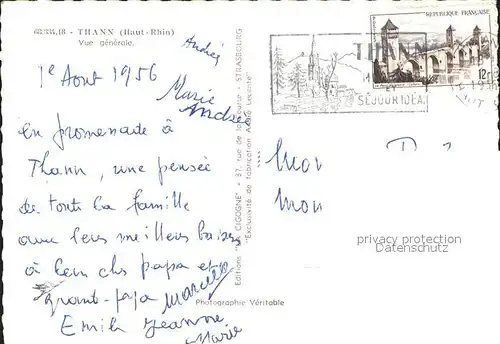 68.334.18 - THANN (Haut-Rhin)
Vue générale.
Andrée
1e Aout 1956
Marie
Andrée
en promenade à
Thann, une pensée
de toute la famille
avec leurs meilleurs baisers
à leur cher papa et
grant-papa Marcelle
Emile Jeanne
Marie
Editions "LA CIGOGNE" - 37, rue de la Course - STRASBOURG
"Exclusivité de fabrication
Photographie Véritable
REPUBLIQUE FRANÇAISE
12F
THANN
SÉJOUR IDÉAL
1956
Mon
Mon
privacy protection
Datenschutz